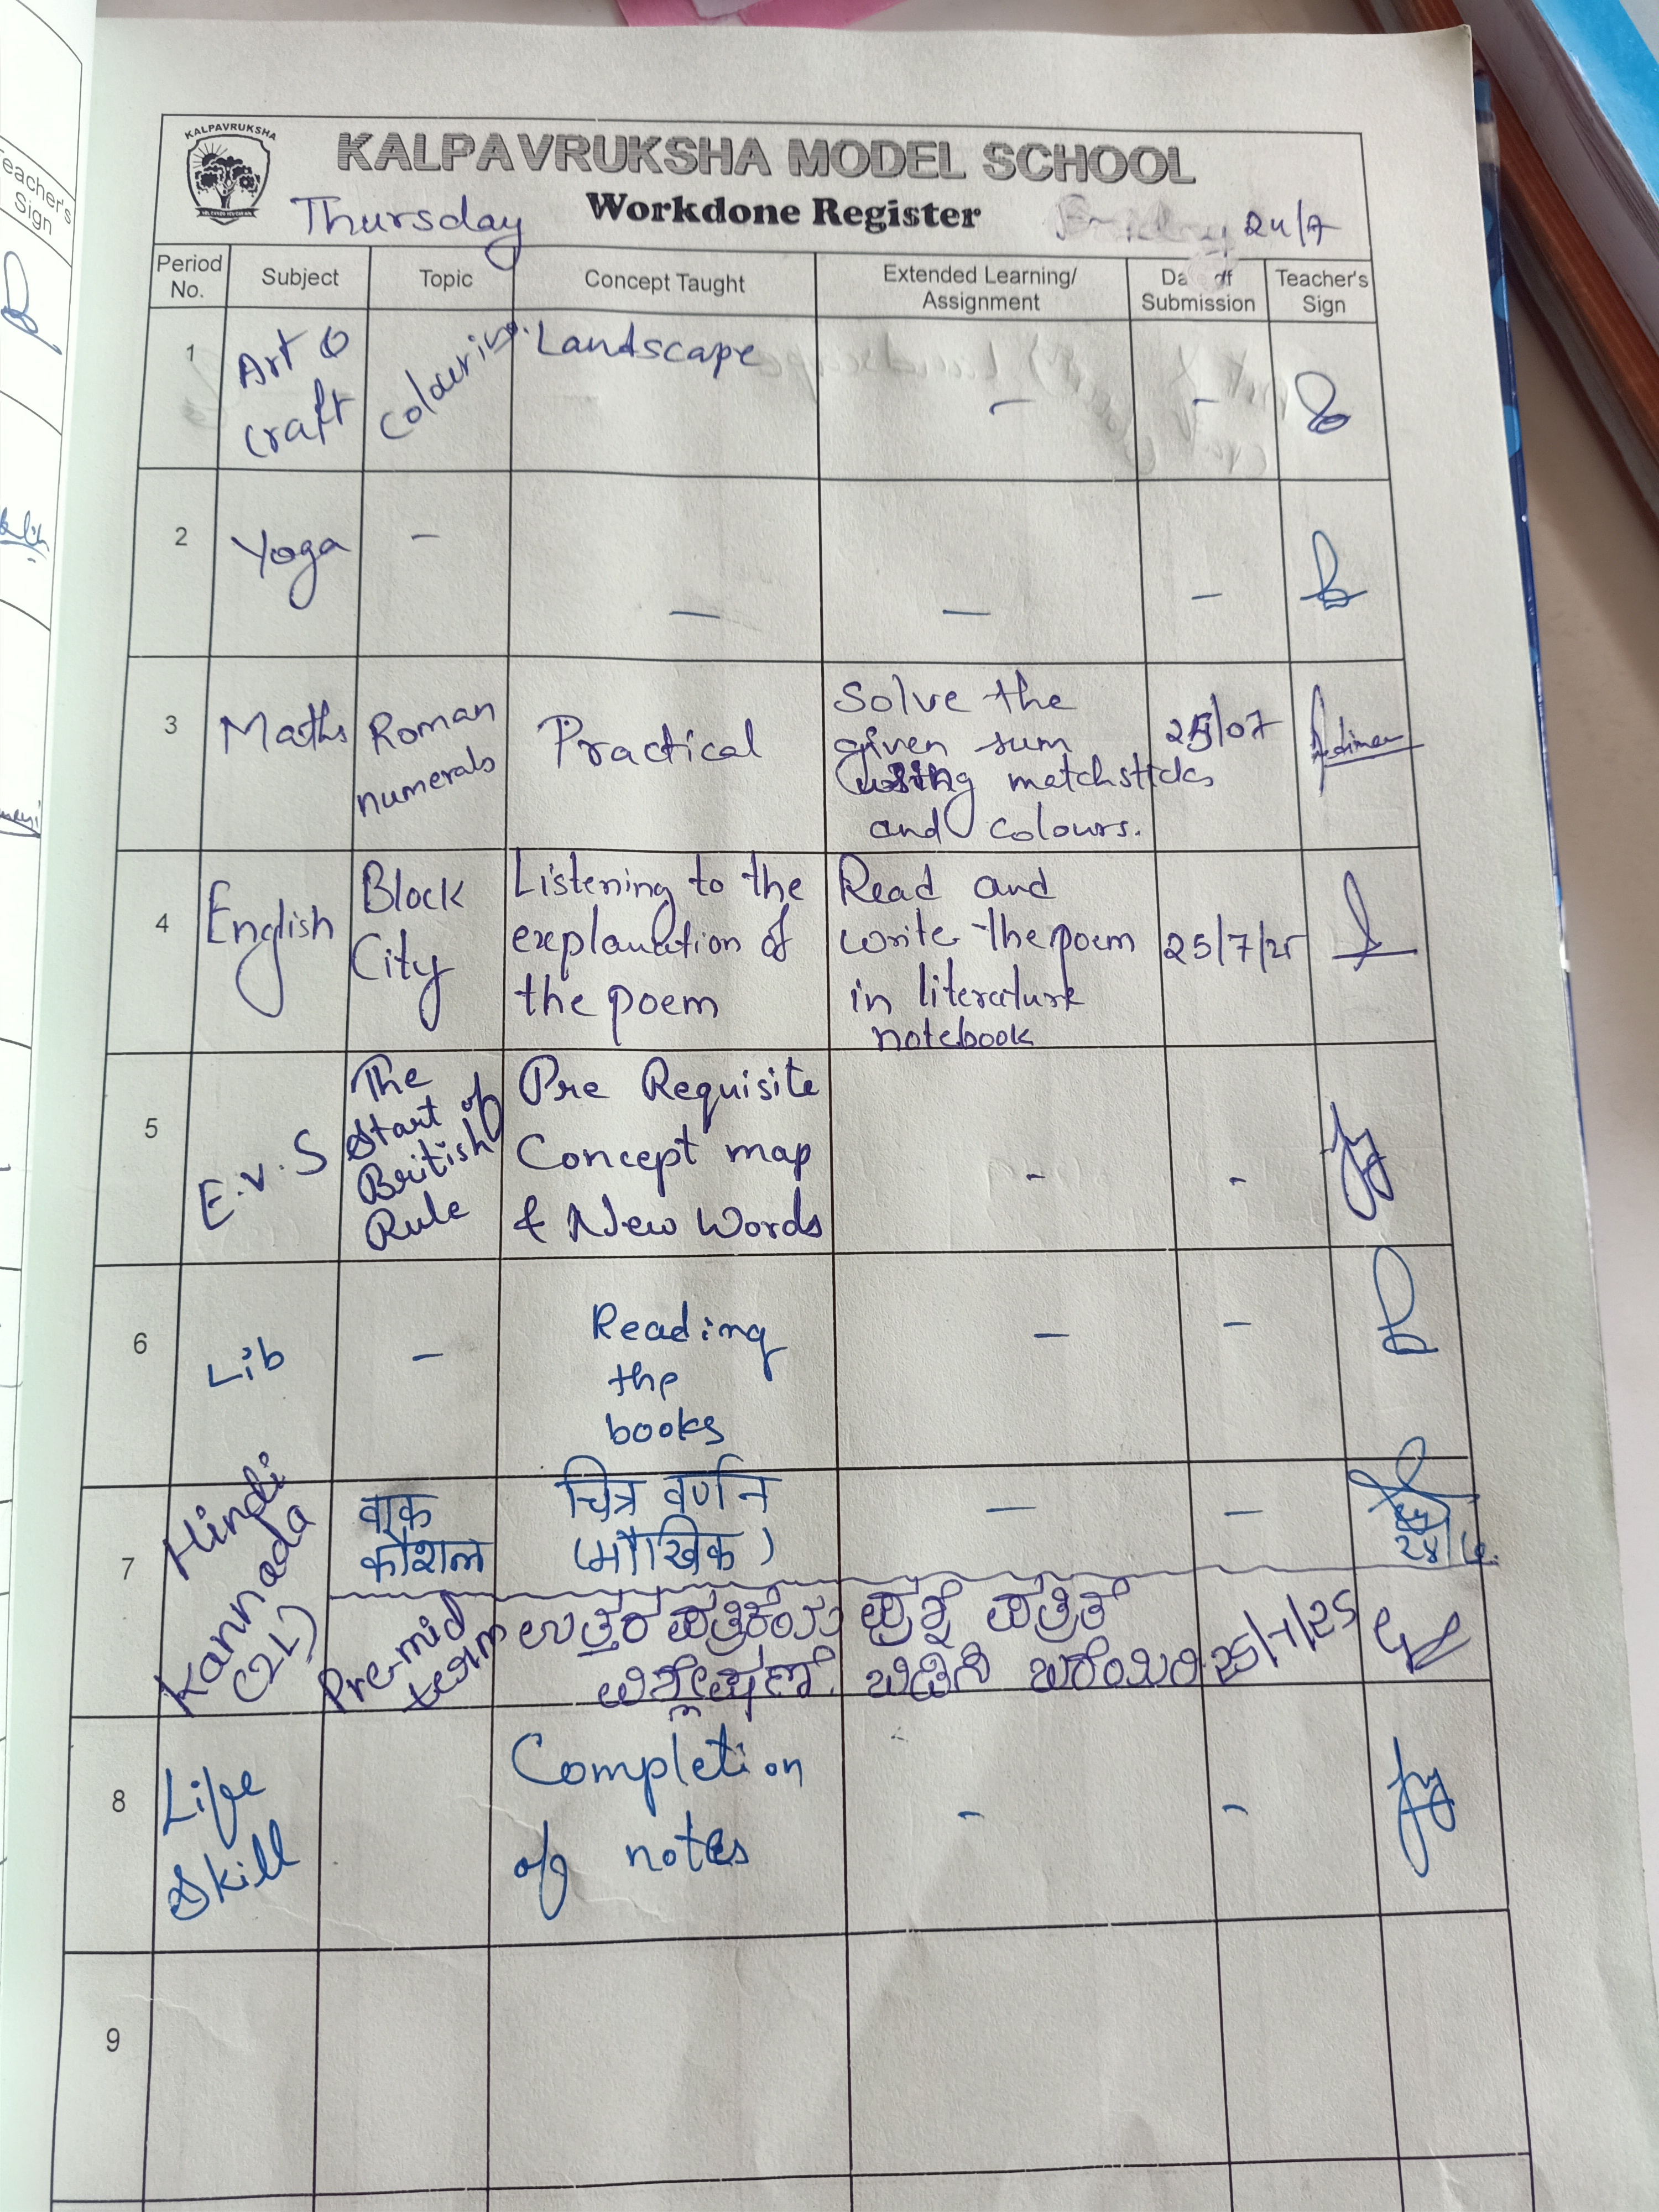 KALPAVRUKSHA
KALPAVRUKSHA MODEL SCHOOL
Thursday Workdone Register 24/7
Period No. Subject Topic Concept Taught Extended Learning/ Assignment Submission Teacher's Sign
1 Art & craft Colouring. Landscape - -
2 Yoga - - - -
3 Maths Roman numerals Practical Solve the given sum using matchsticks and colours. 25/07
4 English Block City Listening to the explanation of the poem Read and write the poem in literature notebook 25/7/25
5 E.V.S The Start of British Rule Pre Requisite Concept map & New Words - -
6 Lib - Reading the books - -
7 Hindi वाक कौशल चित्र वर्णन (मौखिक) - -
Kannada (2L) Pre-mid term ಉತ್ತರ ಪತ್ರಿಕೆಯ ವಿಶ್ಲೇಷಣೆ. ಪ್ರಶ್ನೆ ಬಿಡಿಸಿ ಬರೆಯಿರಿ 25/7/25
8 Life Skill Completion of notes - -
9
Teacher's
Sign